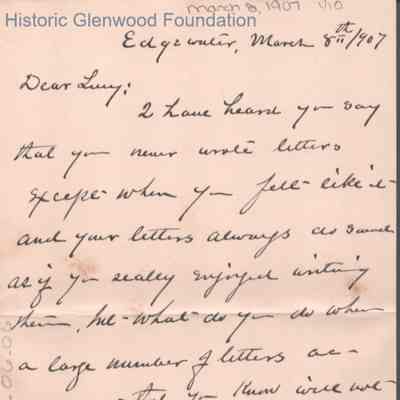 Historic Glenwood Foundation
March 8, 1907 1/10
Edgewater, March 8th/1907
Dear Lucy:
I have heard you say
that you never wrote letters
except when you felt like it
and your letters always do sound
as if you really enjoyed writing
them, but what do you do when
a large number of letters ac-
that you know will not